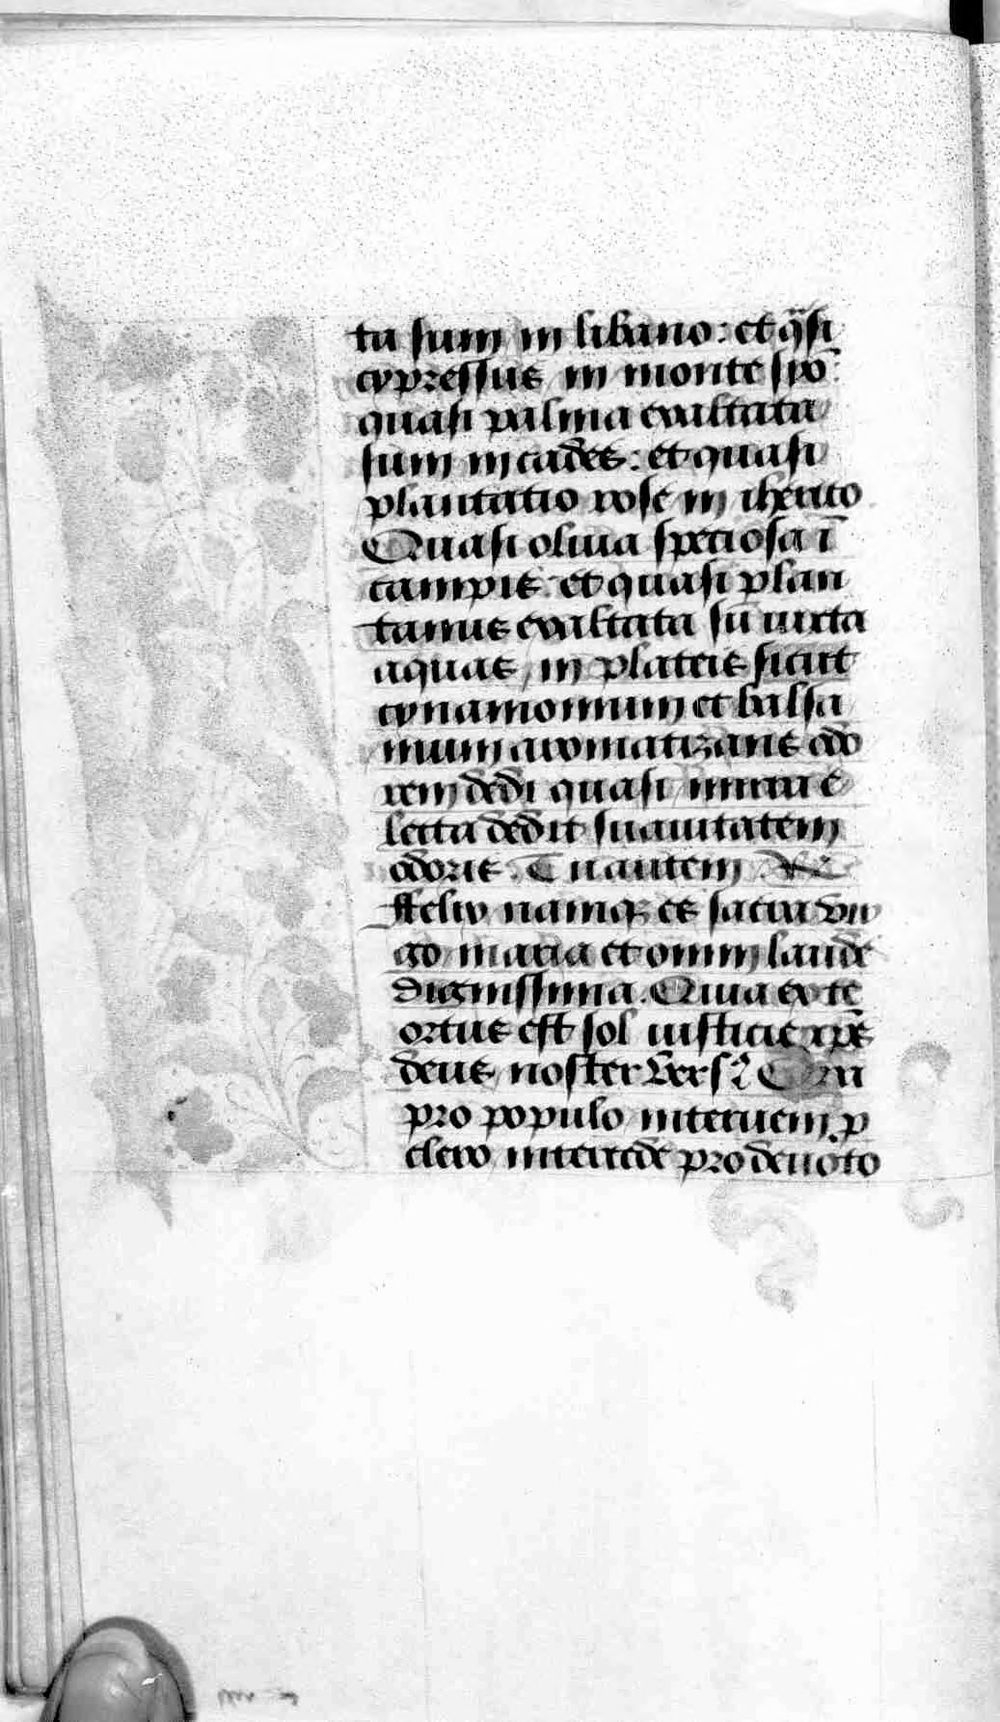 ta sum in libano: et q̃si
cypressus in monte syo:
quasi palma exaltata
sum in cades: et quasi
plantatio rose in iherico
Quasi oliua speciosa ĩ
campis: et quasi plan
tanus exaltata sũ iuxta
aquas in plateis sicut
cynamomum et balsa
mum aromatizans odo
rem dedi quasi mirra e
lecta dedit suauitatem
odoris. Tu autem
Felix namq; es sacra vir
go maria et omni laude
dignissima. Quia ex te
ortus est sol iusticie xp̃s
deus noster Vers᾽ Ora
pro populo interueni p
clero intercede pro deuoto